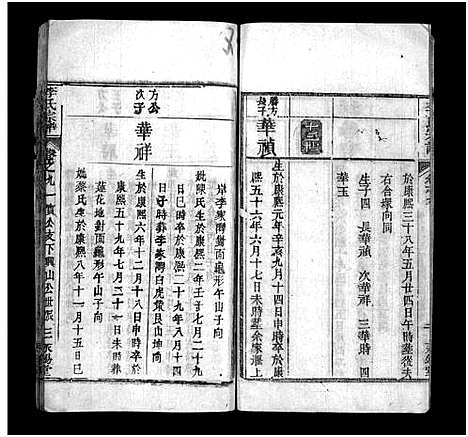 於康熙三十八年五月廿四日午時葬復夫
右台緣向同
生子四 長華禎 次華祥 三華時 四
華玉
勝方長子
華禎
生於康熙元年辛亥九月十四日申時卒於康
熙五十六年六月十七日未時葬余家堰上
岸李家灣對面龜形午山子向
妣陳氏生於康熙二年壬子七月二十九
日巳時卒於康熙二十九年八月十一
日戌時葬李家灣白虎嘴艮山坤向
方公次子
華祥
生於康熙六年十二月十八日申時卒於
康熙五十九年七月二十一日未時葬
蓮花地對面龜形午山子向
妣蔡氏生於康熙八年十一月十五日
李氏宗譜
卷之九 一慎公支下興山公世系 三 永錫堂